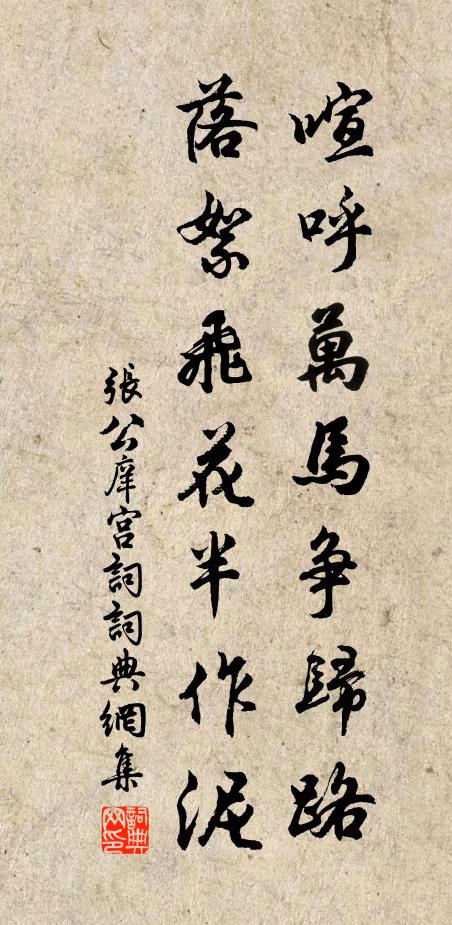 喧呼萬馬爭歸路
落絮飛花半作泥
張公庠宮詞詞典網集
詞典網印